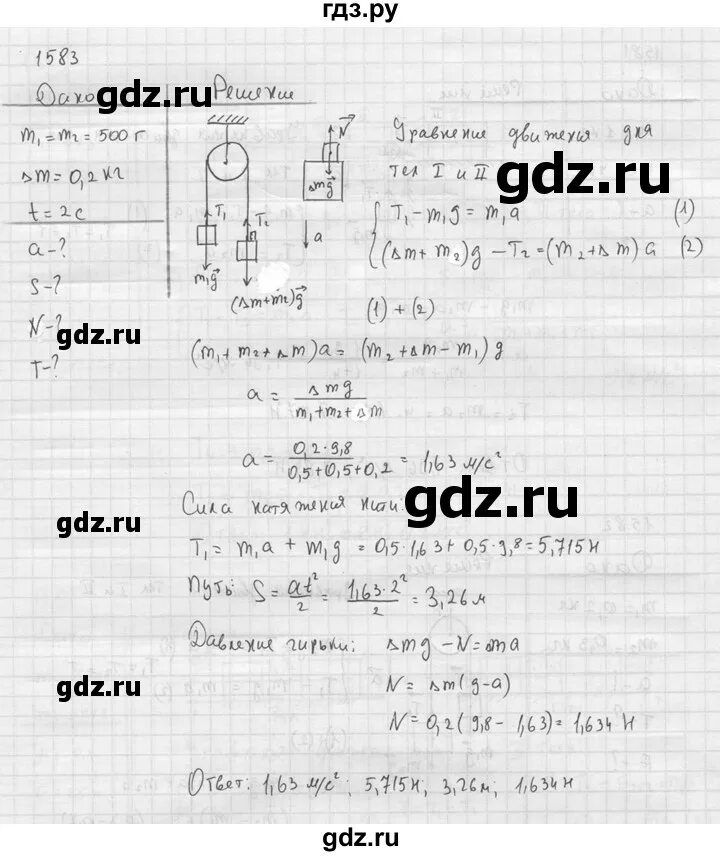 гдз.ру
1583
Дано Решение
gdz.ru gdz.ru
m₁ = m₂ = 500 г
Δm = 0,2 кг
t = 2 c
a - ?
S - ?
N - ?
T - ?
gdz.ru
T₁ T₂
m₁g⃗
(Δm+m₂)g⃗
N⃗
Δmg⃗
a
Уравнение движения для
тел I и II
T₁ - m₁g = m₁a (1)
(Δm + m₂)g - T₂ = (m₂ + Δm) a (2)
(1) + (2)
(m₁ + m₂ + Δm)a = (m₂ + Δm - m₁) g
a = Δmg / m₁+m₂+Δm
a = 0,2·9,8 / 0,5+0,5+0,2 = 1,63 м/с²
gdz.ru gdz.ru
Сила натяжения нити:
T₁ = m₁a + m₁g = 0,5·1,63 + 0,5·9,8 = 5,715 Н
Путь: S = at²/2 = 1,63·2²/2 = 3,26 м
Давление гирьки: Δmg - N = Δma
gdz.ru
N = Δm(g-a)
N = 0,2(9,8 - 1,63) = 1,634 Н
Ответ: 1,63 м/с²; 5,715 Н; 3,26 м; 1,634 Н
gdz.ru